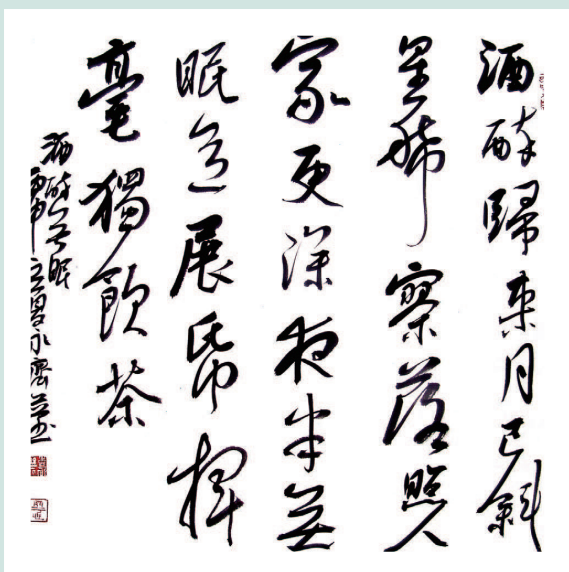 酒醉歸來月已斜
星稀寥落照人
家更深夜半無
眠意展帋揮
毫獨飲茶
酒醉無眠